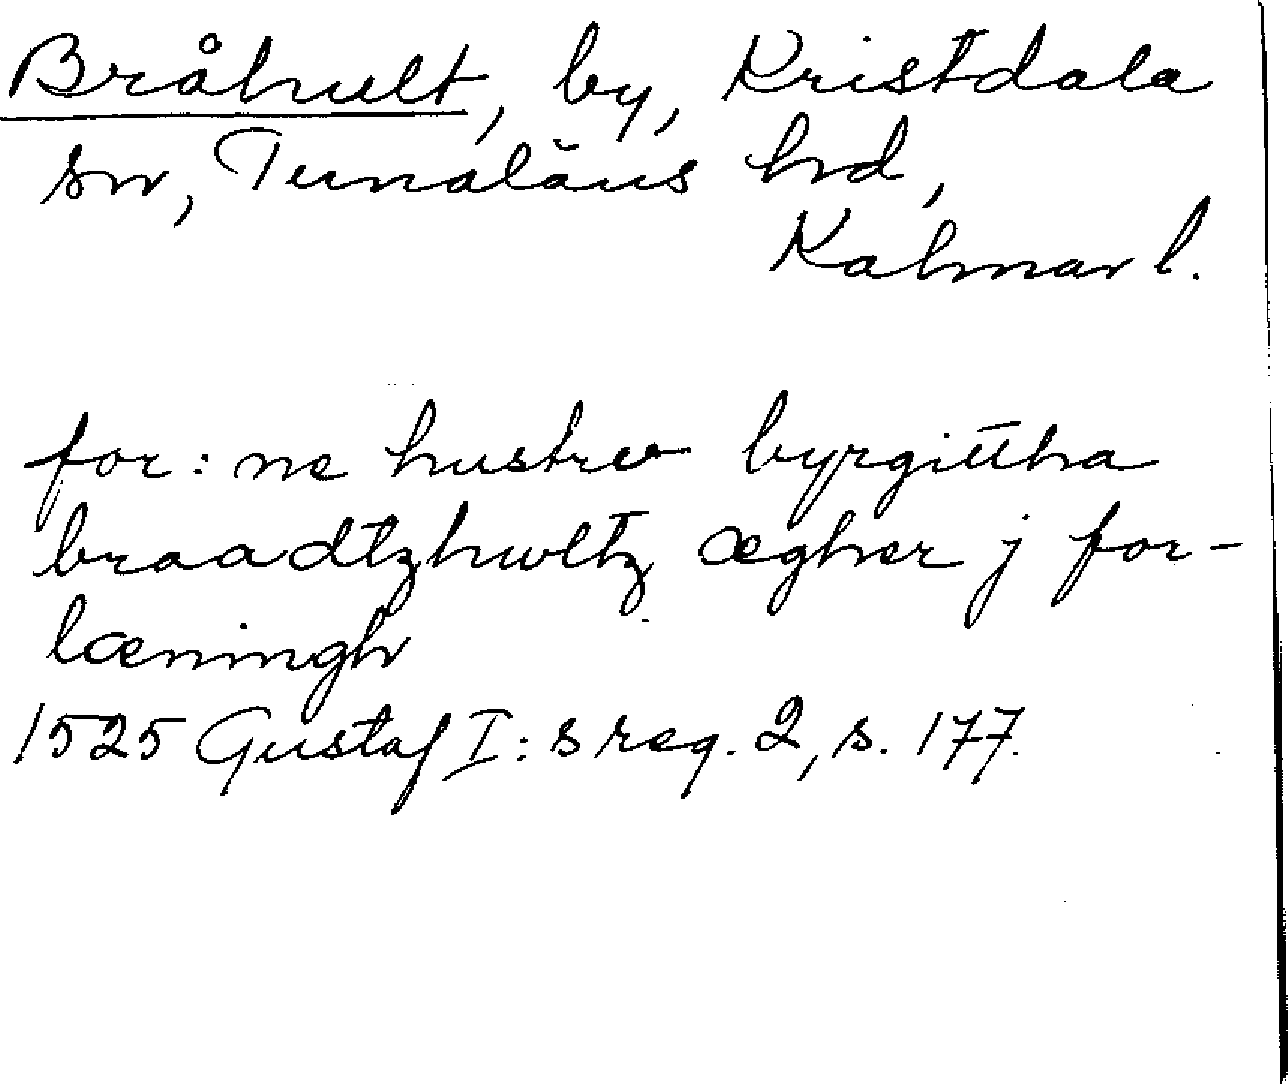 Bråhult, by, Kristdala
sn, Tunaläns hd,
Kalmar l.
for: ne hustrv byrgittha
braadtzhwltz ægher j for-
læningh
1525 Gustaf I: s reg. 2, s. 177.